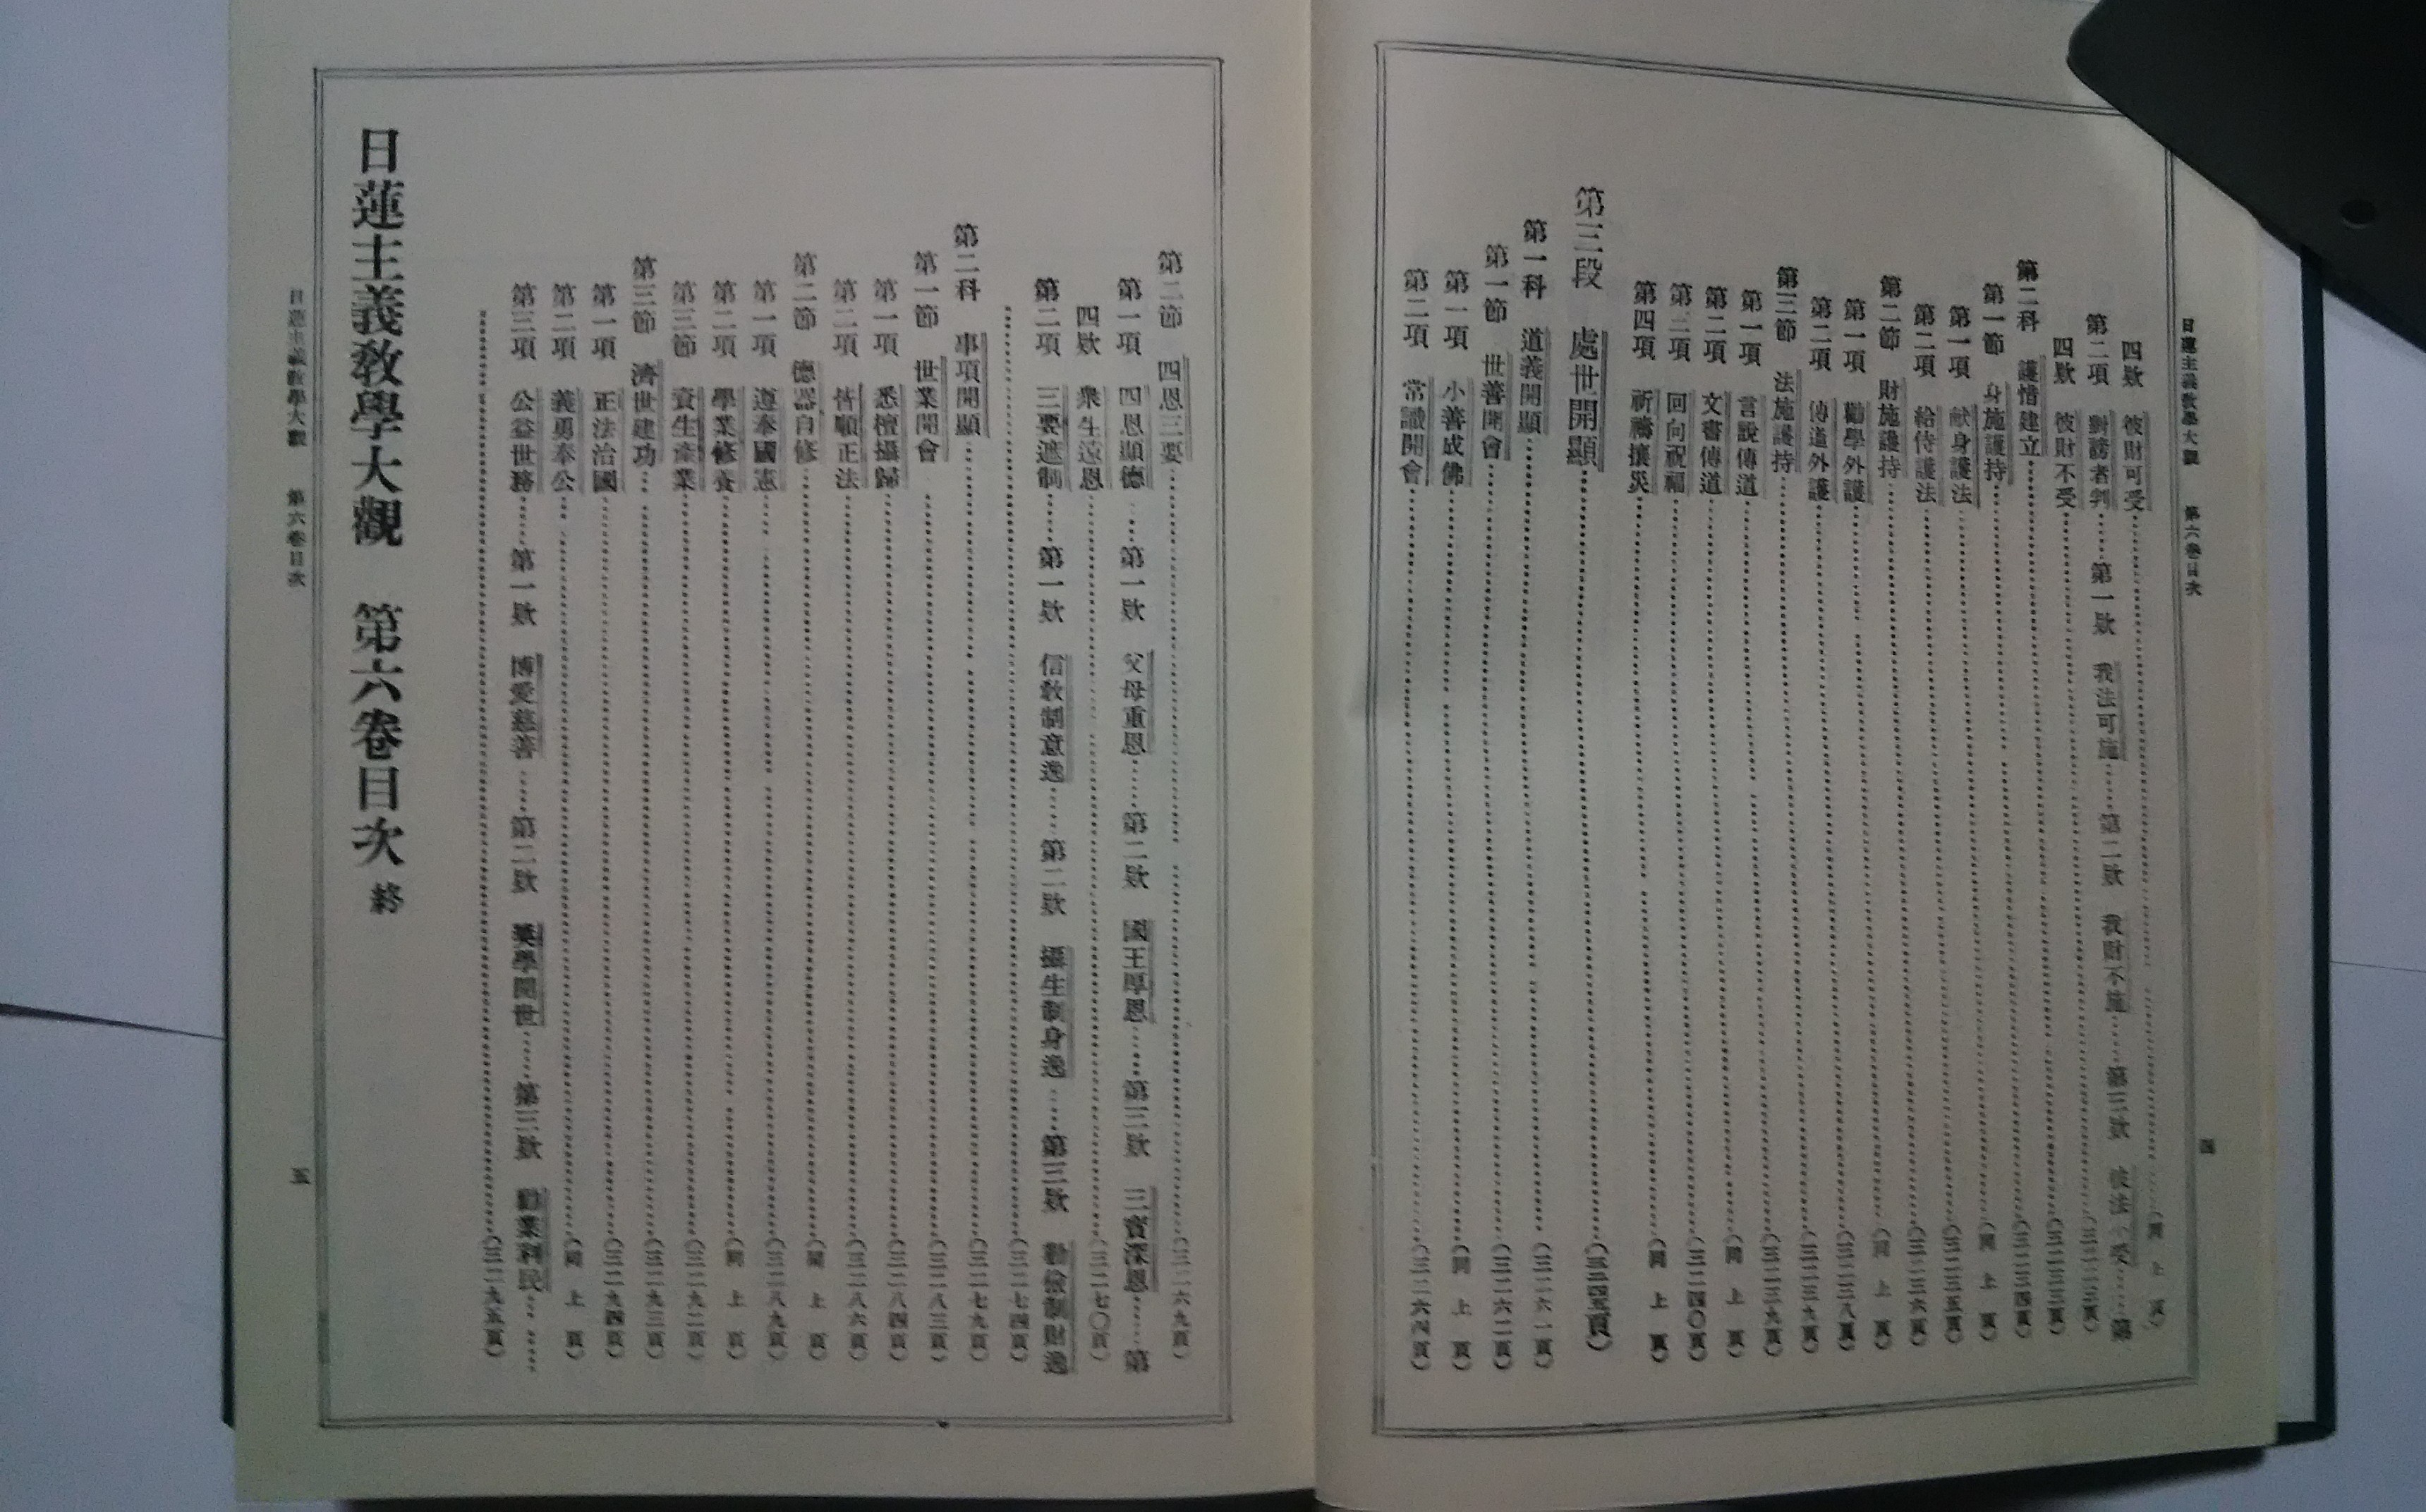 日蓮主義教學大觀　第六卷目次
四
四欵　彼財可受……（同　上　頁）
第二項　對謗者判……第一欵　我法可施……第二欵　我財不施……第三欵　彼法　受……第
四欵　彼財不受……（三二三三頁）
第二科　護惜建立……（三二三四頁）
第一節　身施護持……（同　上　頁）
第一項　献身護法……（三二三五頁）
第二項　給侍護法……（三二三六頁）
第二節　財施護持……（同　上　頁）
第一項　勸學外護……（三二三八頁）
第二項　傳道外護……（三二三九頁）
第三節　法施護持……（三二三九頁）
第一項　言說傳道……（同　上　頁）
第二項　文書傳道……（三二四〇頁）
第三項　回向祝福
第四項　祈禱攘災……（同　上　頁）
第三段　處世開顯……（三二四五頁）
第一科　道義開顯……（三二六一頁）
第一節　世善開會……（三二六二頁）
第一項　小善成佛……（同　上　頁）
第二項　常識開會……（三二六四頁）
第二節　四恩三要……（三二六九頁）
第一項　四恩顯德……第一欵　父母重恩……第二欵　國王厚恩……第三欵　三寶深恩……第
四欵　衆生遠恩……（三二七〇頁）
第二項　三要遮制……第一欵　信敎制意逸……第二欵　攝生制身逸……第三欵　勤儉制財逸
……（三二七四頁）
第二科　事項開顯……（三二七九頁）
第一節　世業開會……（三二八三頁）
第一項　悉檀攝歸……（三二八四頁）
第二項　皆順正法……（三二八六頁）
第二節　德器自修……（同　上　頁）
第一項　遵奉國憲……（三二八九頁）
第二項　學業修養……（同　上　頁）
第三節　資生產業……（三二九二頁）
第三節　濟世建功……（三二九三頁）
第一項　正法治國……（三二九四頁）
第二項　義勇奉公……（同　上　頁）
第三項　公益世務……第一欵　博愛慈善……第二欵　獎學開世……第三欵　勸業利民……
……（三二九五頁）
日蓮主義敎學大觀　第六卷目次　終
日蓮主義敎學大觀　第六卷目次
五